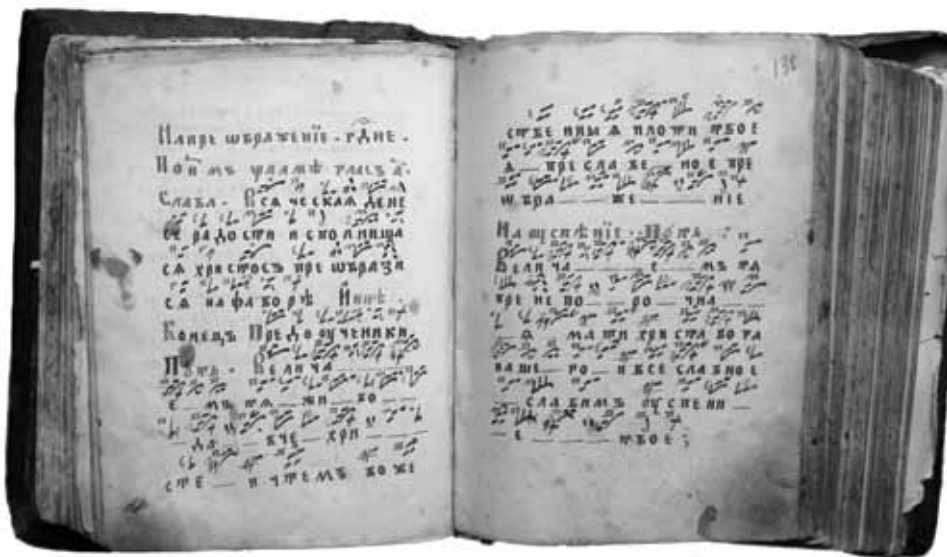 На преѡбраженїе. гдне.
По н҃ мъ ѱалмѣ гласъ а҃.
Слава. Всяческая дене
се радости исполниша
ся христосъ преѡбрази
ся нафаворѣ Ннѣ.
Конецъ Предоученики.
Пѣть. Велича
е мъ тя жи во
да вче хри
сте и чтемъ боже
138
стве ныя плоти твое
я пре славе но е пре
ѡбра же нїе
На оуспѣнїе. Пѣть.
Велича е мъ тя
пре не по ро чна
я мати христа бога
наше го и все славное
славимъ оуспени
е твое ;